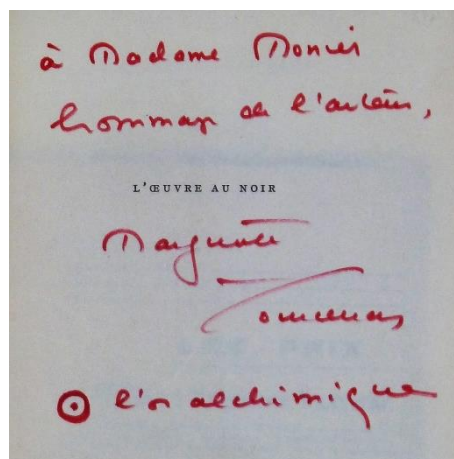 à Madame Monier
hommage de l'auteur,
L'ŒUVRE AU NOIR
Marguerite
Yourcenar
☉ l'or alchimique